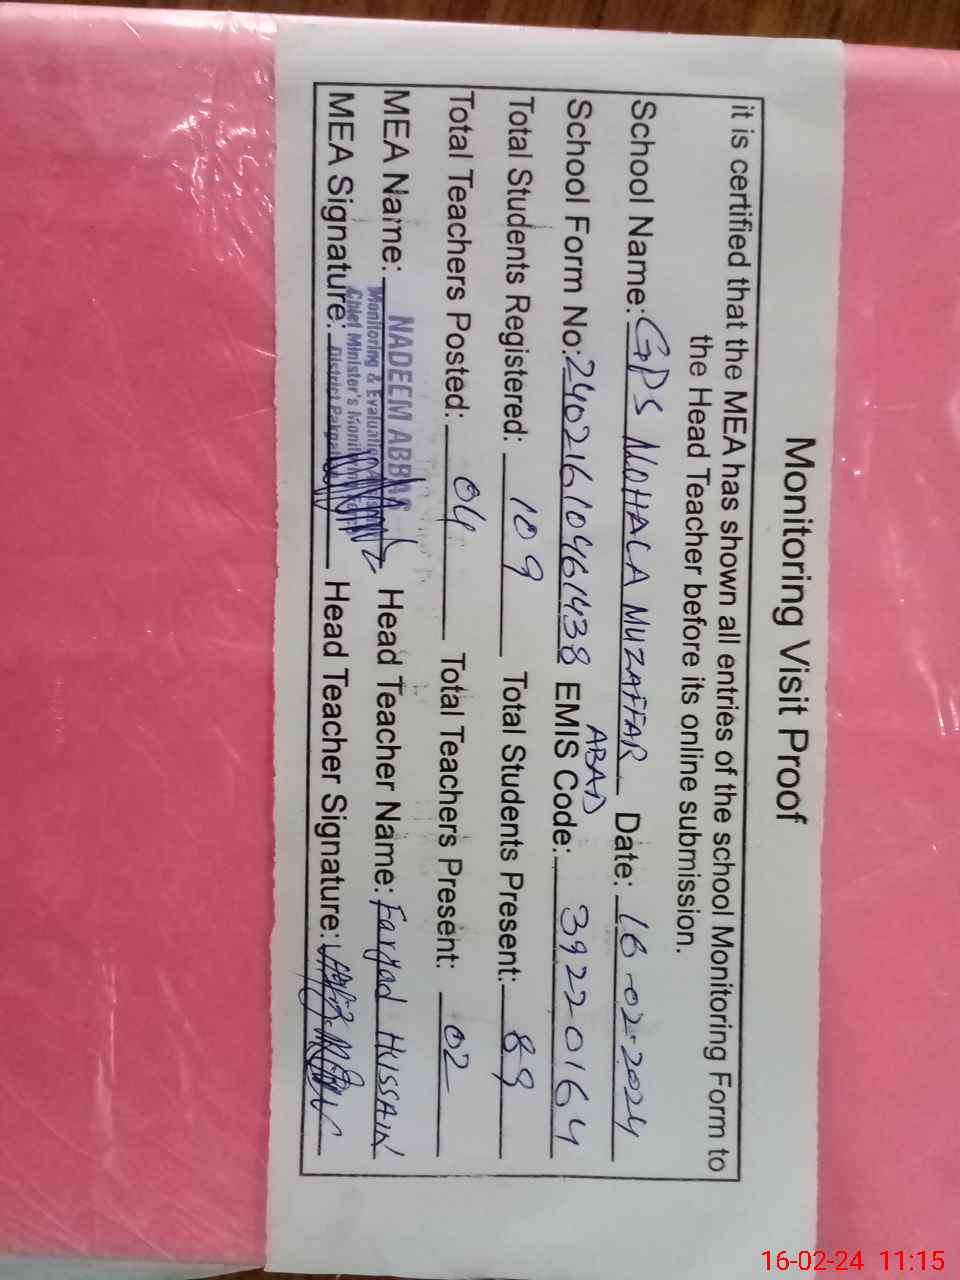 Monitoring Visit Proof
it is certified that the MEA has shown all entries of the school Monitoring Form to
the Head Teacher before its online submission.
School Name: GPS MOHALA MUZAFFAR ABAD Date: 16-02-2024
School Form No: 24021610461438 EMIS Code: 39220164
Total Students Registered: 109 Total Students Present: 89
Total Teachers Posted: 04 Total Teachers Present: 02
MEA Name: NADEEM ABBAS Head Teacher Name: Faryad HUSSAIN
Monitoring & Evaluation
Chief Minister's Monitoring
District Pakpattan
MEA Signature: Head Teacher Signature:
16-02-24 11:15